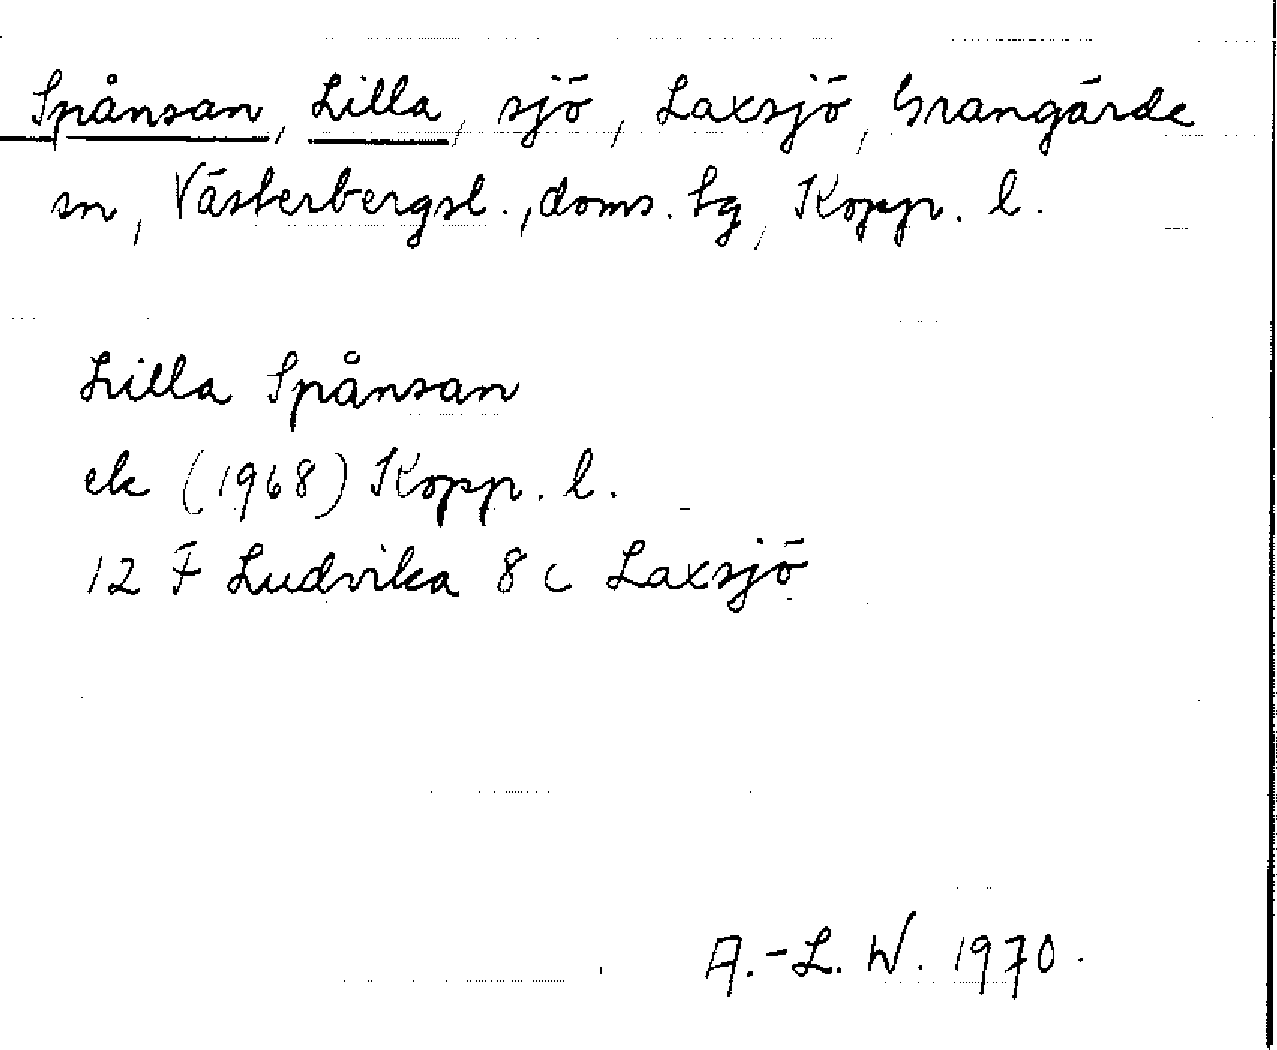 Spånsan, Lilla, sjö, Laxsjö, Grangärde
sn, Västerbergsl., doms. tg, Kopp. l.
Lilla Spånsan
ek (1968) Kopp. l.
12 F Ludvika 8 c Laxsjö
A.-L. W. 1970.